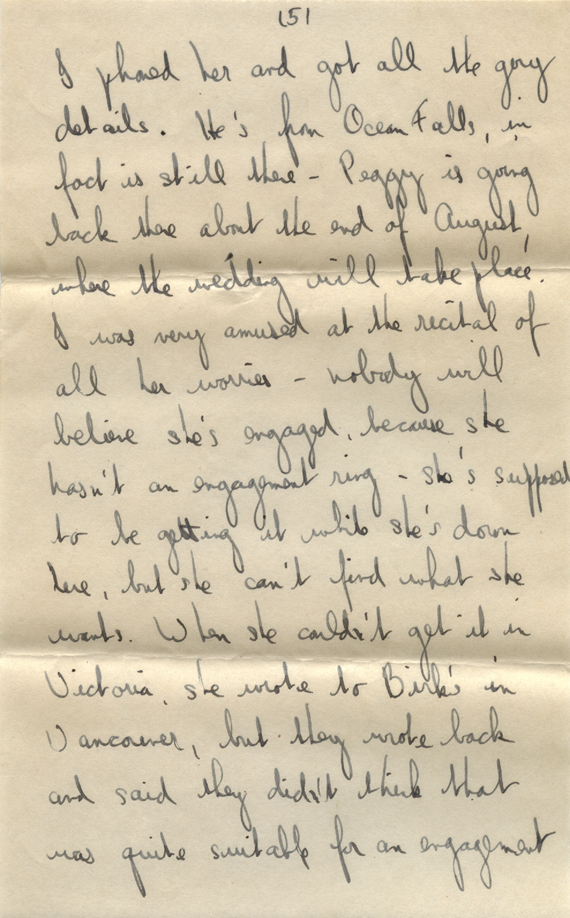 (5)
I phoned her and got all the gory
details. He's from Ocean Falls, in
fact is still there - Peggy is going
back there about the end of August,
where the wedding will take place.
I was very amused at the recital of
all her worries - nobody will
believe she's engaged, because she
hasn't an engagement ring - she's supposed
to be getting it while she's down
here, but she can't find what she
wants. When she couldn't get it in
Victoria, she wrote to Birk's in
Vancouver, but they wrote back
and said they didn't think that
was quite suitable for an engagement